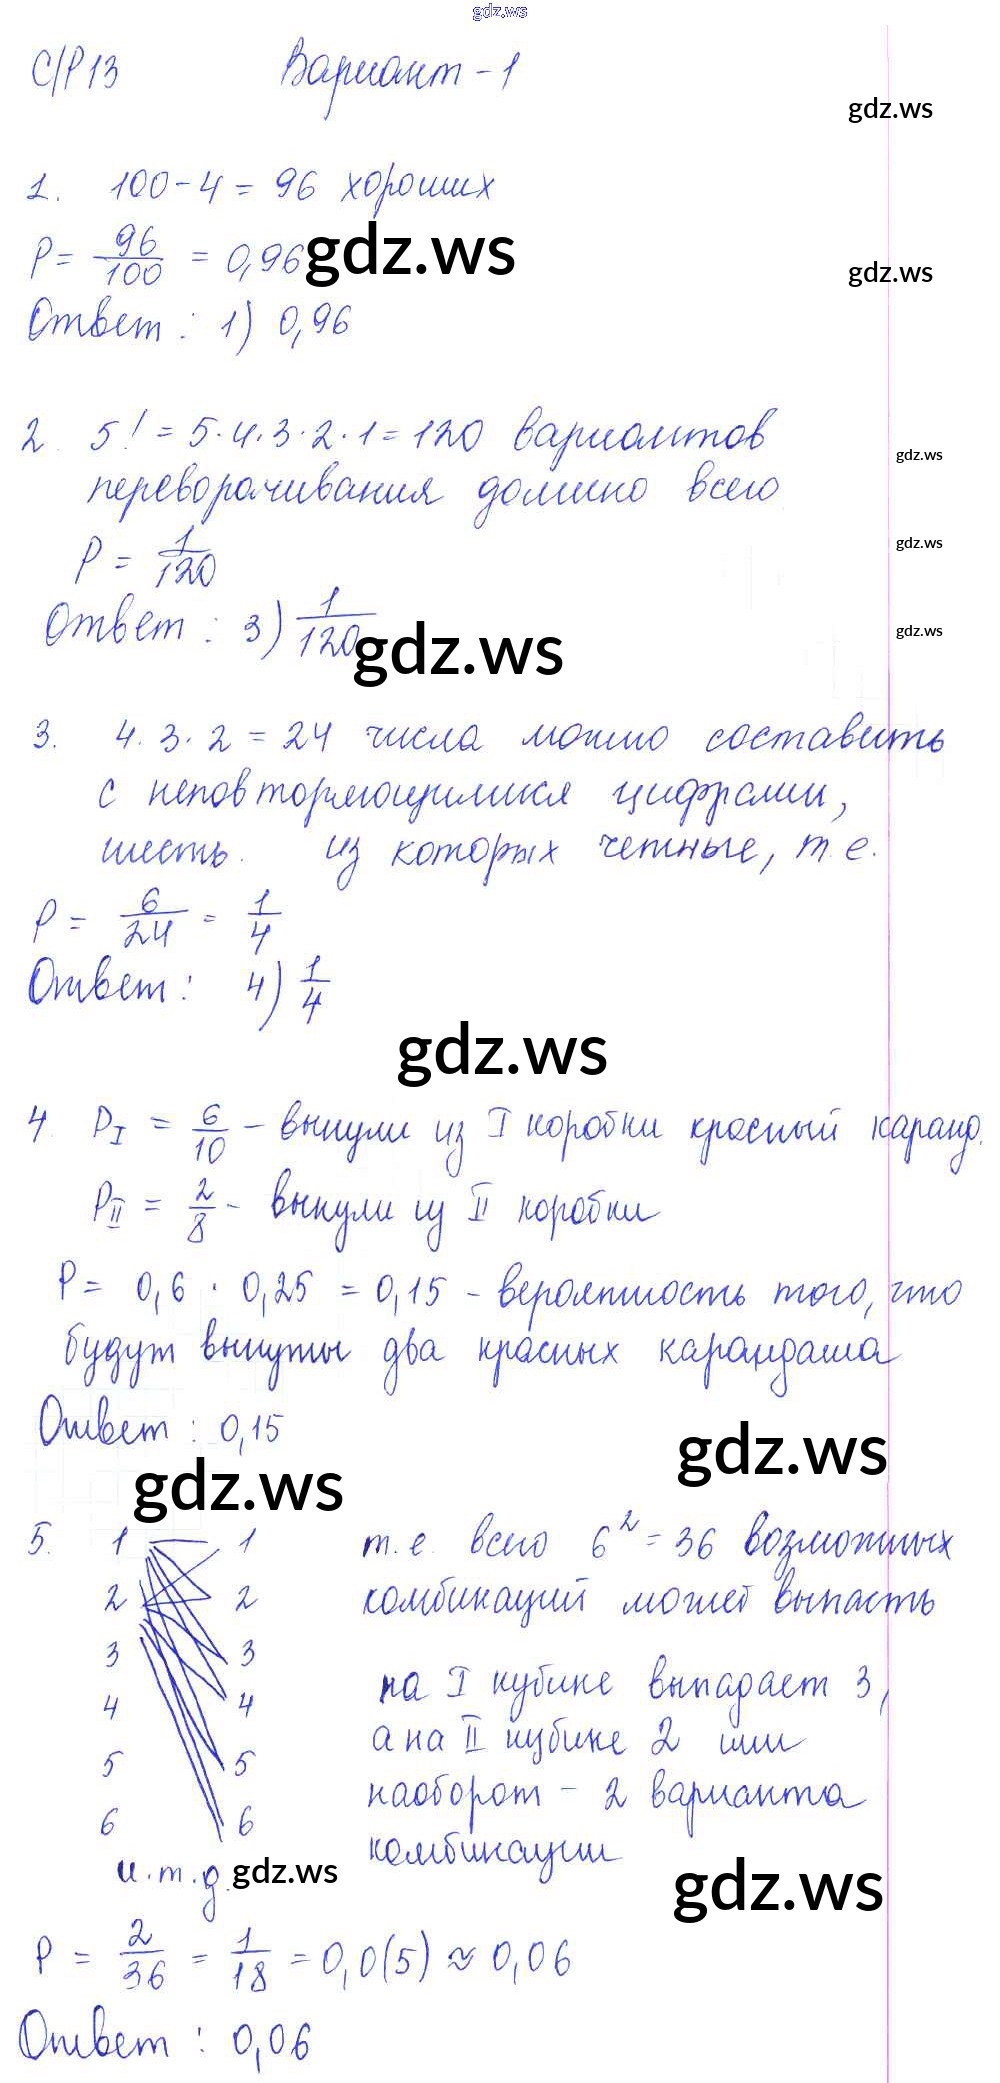 gdz.ws
С/Р 13 Вариант - 1
gdz.ws
1. 100 - 4 = 96 хороших
P = 96/100 = 0,96 gdz.ws
gdz.ws
Ответ: 1) 0,96
2. 5! = 5·4·3·2·1 = 120 вариантов
gdz.ws
переворачивания домино всего
P = 1/120
gdz.ws
Ответ: 3) 1/120
gdz.ws
gdz.ws
3. 4·3·2 = 24 числа можно составить
с неповторяющимися цифрами,
шесть из которых четные, т.е.
P = 6/24 = 1/4
Ответ: 4) 1/4
gdz.ws
4. P I = 6/10 - вынули из I коробки красный каранд.
P II = 2/8 - вынули из II коробки
P = 0,6 · 0,25 = 0,15 - вероятность того, что
будут вынуты два красных карандаша
Ответ: 0,15
gdz.ws
gdz.ws
5. 1 1 т.е. всего 6² = 36 возможных
2 2 комбинаций может выпасть
3 3 на I кубике выпадает 3,
4 4 а на II кубике 2 или
5 5 наоборот - 2 варианта
6 6 комбинации
и.т.д. gdz.ws
gdz.ws
P = 2/36 = 1/18 = 0,0(5) ≈ 0,06
Ответ: 0,06